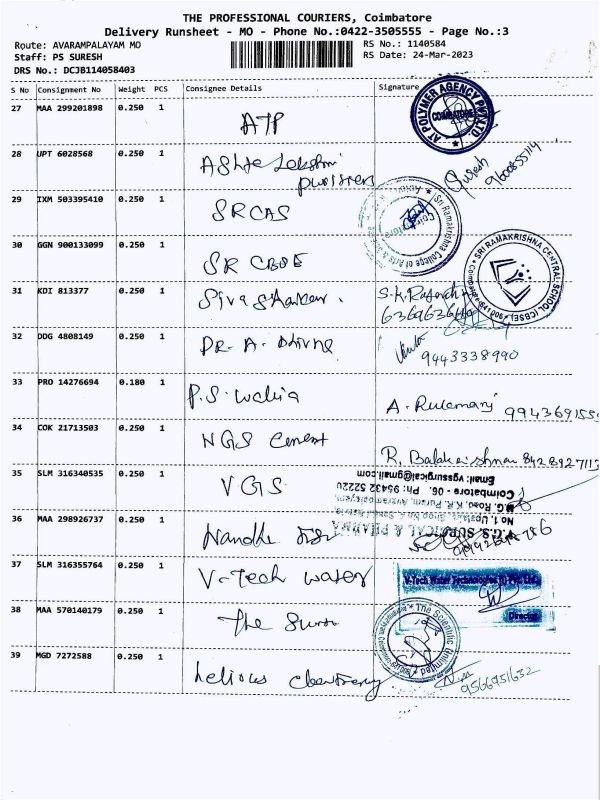 THE PROFESSIONAL COURIERS, Coimbatore
Delivery Runsheet - MO - Phone No.:0422-3505555 - Page No.:3
Route: AVARAMPALAYAM MO
RS No.: 1140584
Staff: PS SURESH
RS Date: 24-Mar-2023
DRS No.: DCJB114058403
S No Consignment No Weight PCS Consignee Details Signature
27 MAA 299201898 0.250 1 ATP
AT POLYMER AGENCY PVT LTD
COIMBATORE
28 UPT 6028568 0.250 1
Suresh
9600855714
29 IXM 503395410 0.250 1 SRCAS
Sri Ramakrishna College of Arts &
Coimbatore
30 GGN 900133099 0.250 1 SR CBSE
SRI RAMAKRISHNA CENTRAL SCHOOL (CBSE)
31 KDI 813377 0.250 1
S.K.
32 DDG 4808149 0.250 1 DR. A.
9443338990
33 PRO 14276694 0.180 1 P.S.
A. 994369155
34 COK 21713503 0.250 1 NGS Cement
R. Balakrishnan 8428927113
35 SLM 316340535 0.250 1 VGS
V.G.S. SURGICAL & PHARMA
M.G. Road,
Coimbatore - 06. Ph: 95432 52220
Email: vgssurgical@gmail.com
36 MAA 298926737 0.250 1 Nandhi
37 SLM 316355764 0.250 1 V-Tech water
V-Tech Water Technologies (I) Pvt. Ltd.,
Director
38 MAA 570140179 0.250 1 The
The Scientific
39 MGD 7272588 0.250 1
9566951632